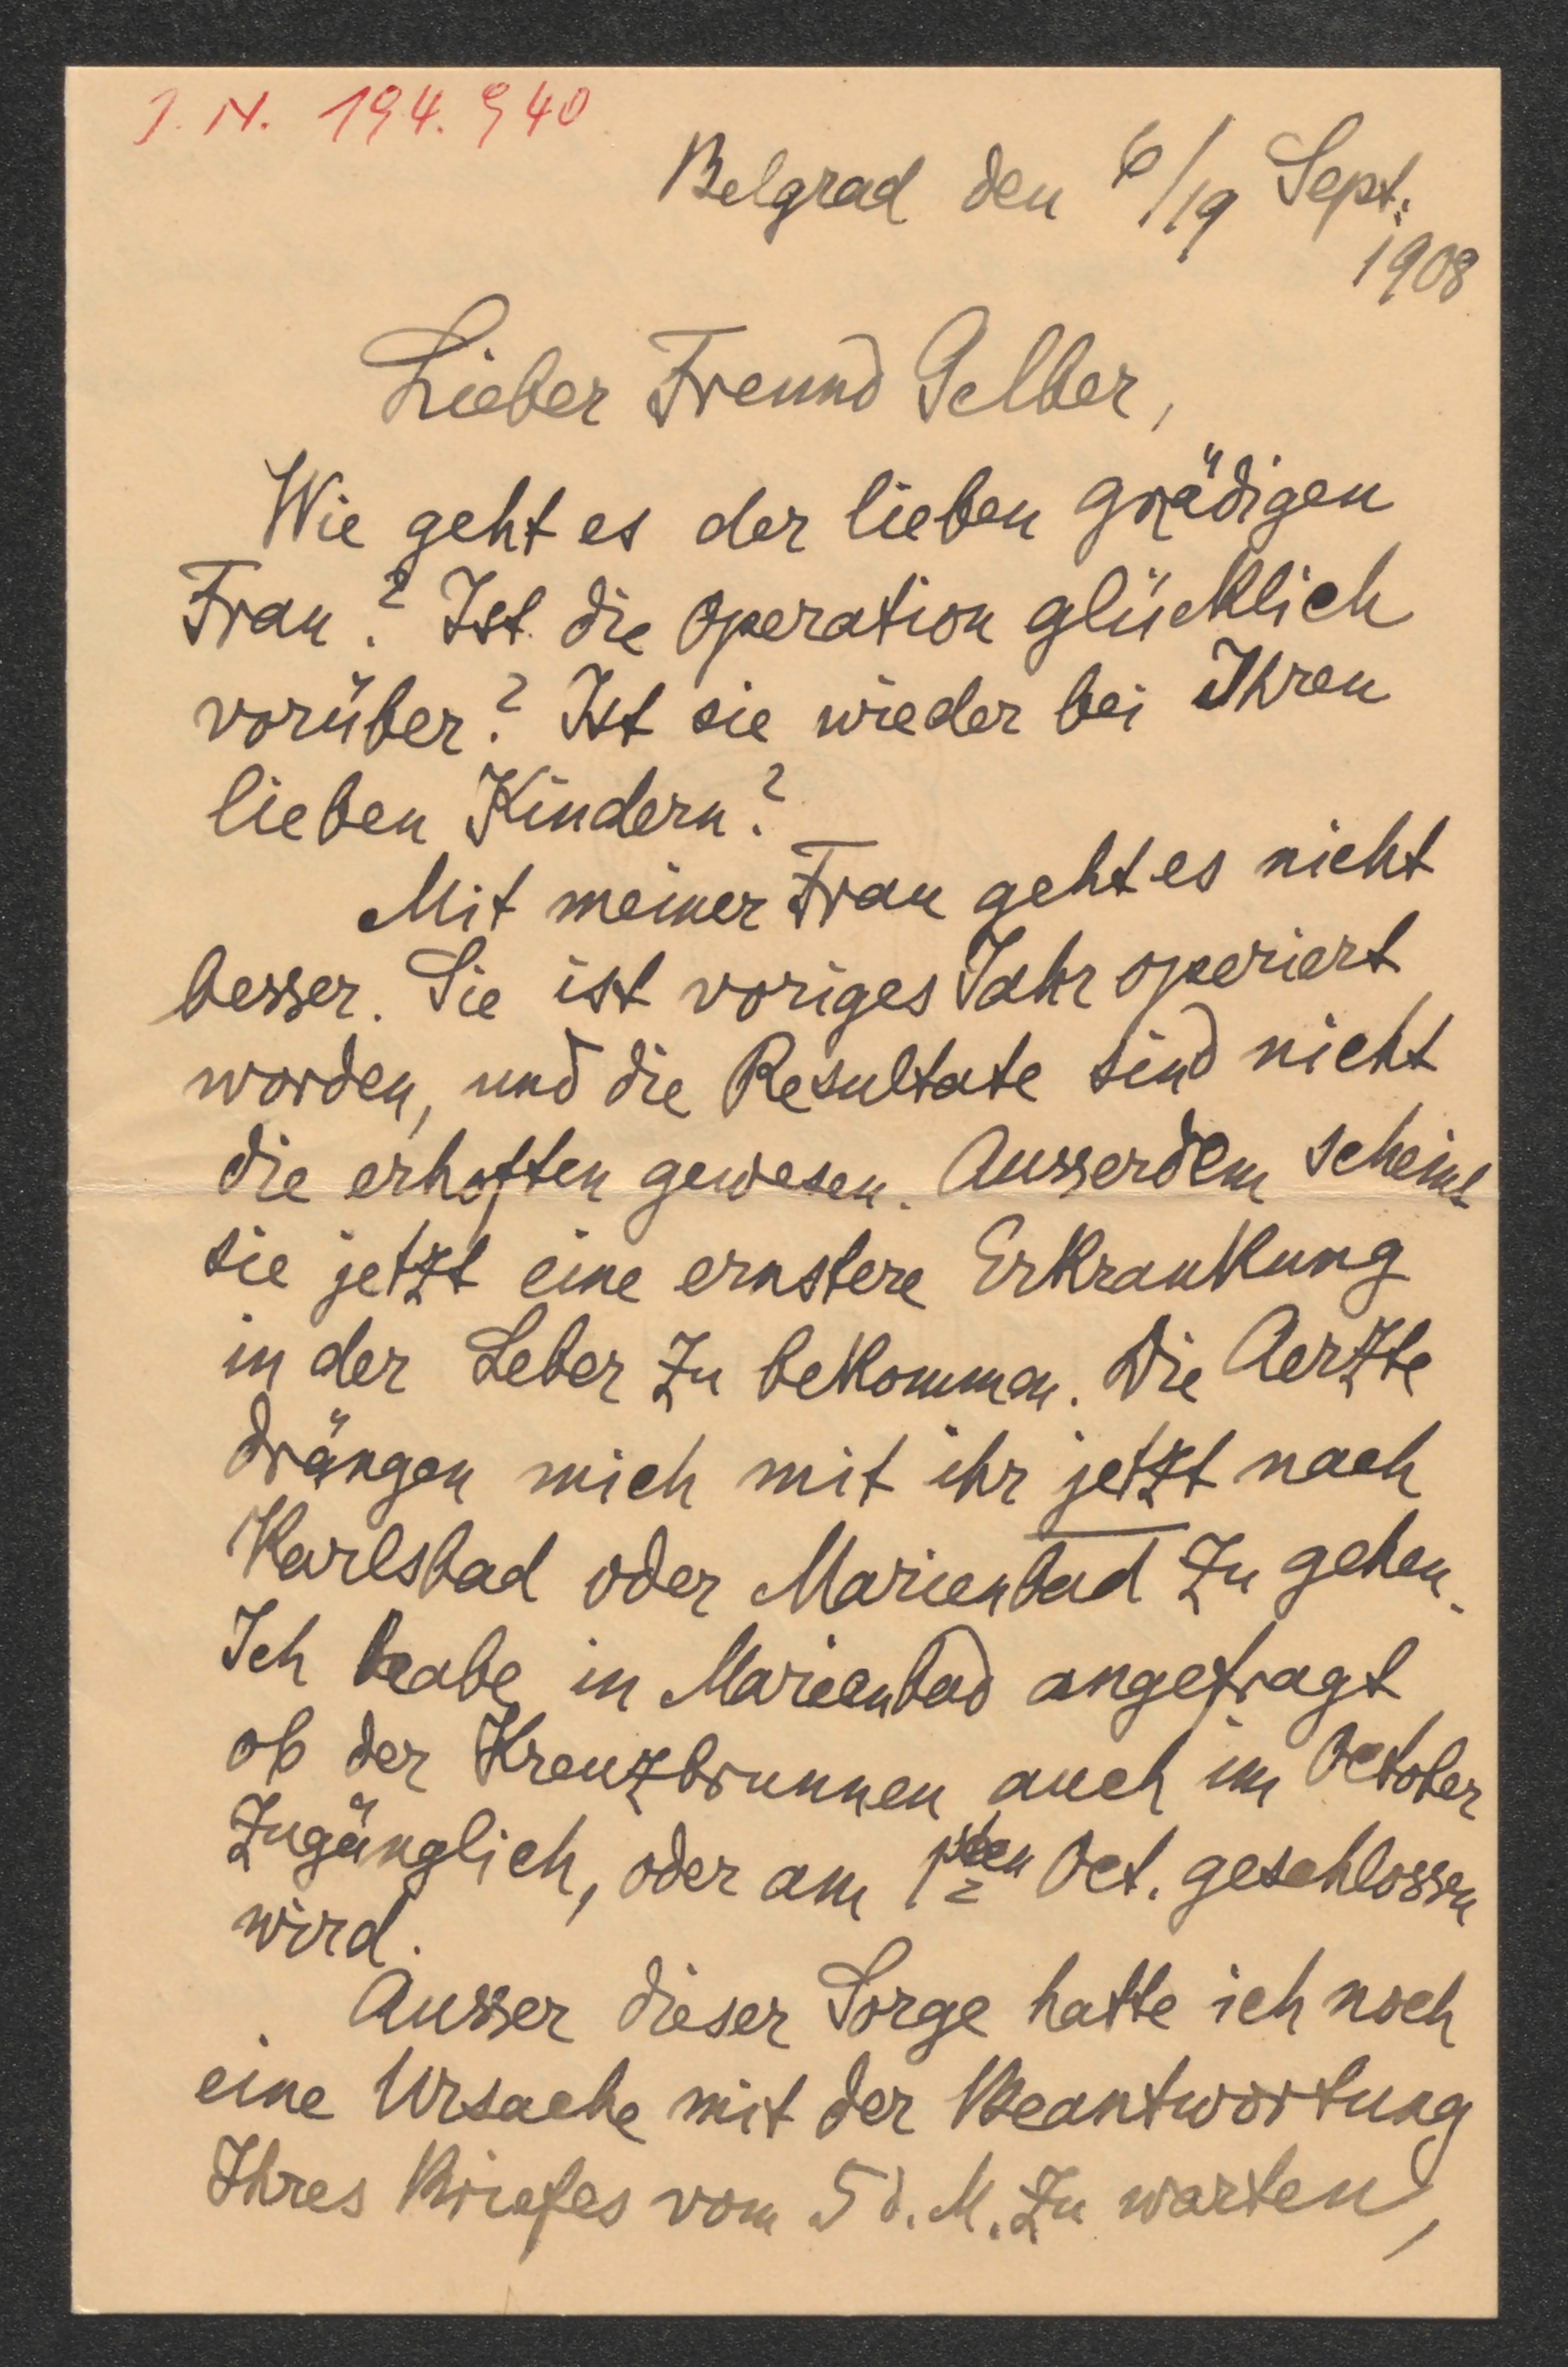 J. N. 194.940
Belgrad den 6/19 Sept.
1908
Lieber Freund Gelber,
Wie geht es der lieben gnädigen
Frau? Ist die Operation glücklich
vorüber? Ist sie wieder bei Ihren
lieben Kindern?
Mit meiner Frau geht es nicht
besser. Sie ist voriges Jahr operiert
worden, und die Resultate sind nicht
die erhoften gewesen. Ausserdem scheint
sie jetzt eine ernstere Erkrankung
in der Leber zu bekommen. Die Aerzte
drängen mich mit ihr jetzt nach
Karlsbad oder Marienbad zu gehen.
Ich habe in Marienbad angefragt
ob der Kreuzbrunnen auch im October
zugänglich, oder am 1sten Oct. geschlossen
wird.
Ausser dieser Sorge hatte ich noch
eine Ursache mit der Beantwortung
Ihres Briefes vom 5 d. M. zu warten,